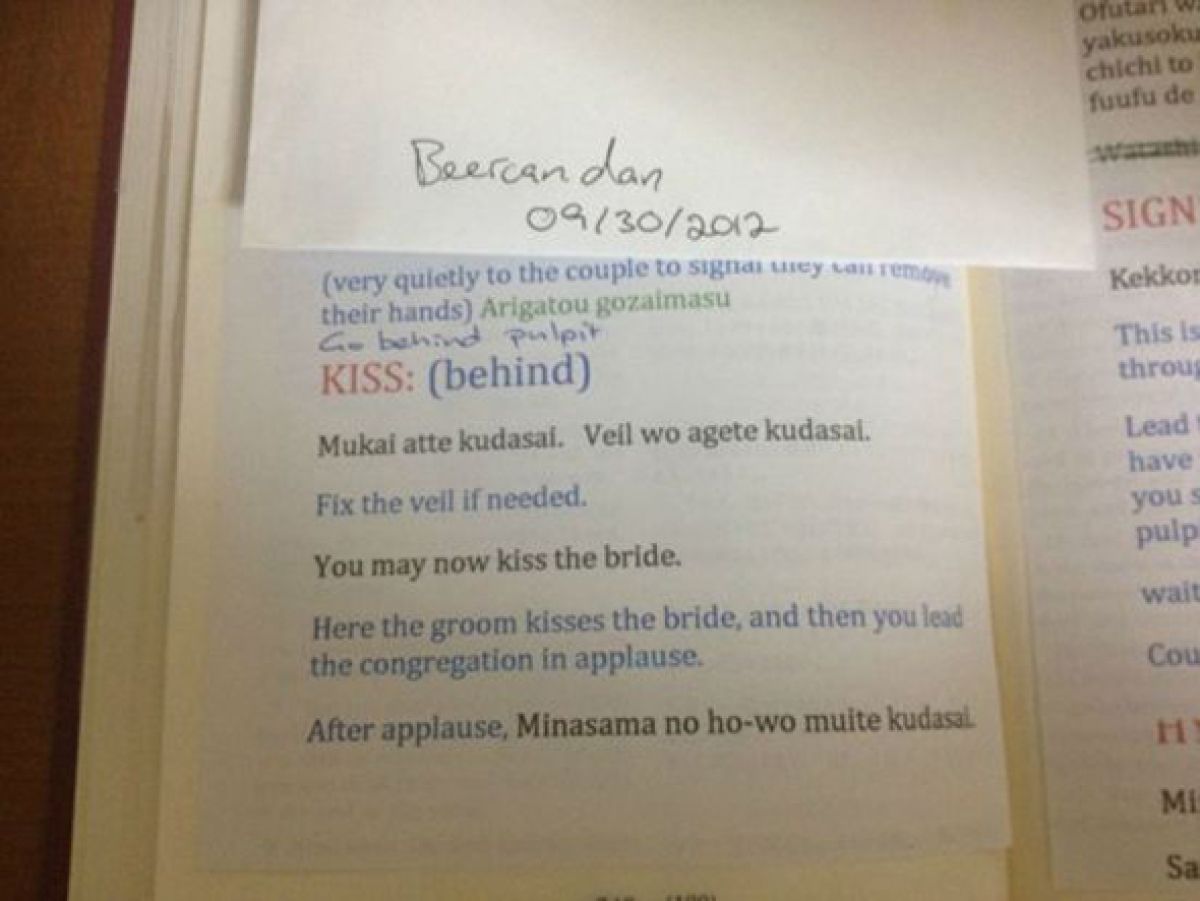 Beercandan
09/30/2012
(very quietly to the couple to signal they can remove
their hands) Arigatou gozaimasu
Go behind pulpit
KISS: (behind)
Mukai atte kudasai. Veil wo agete kudasai.
Fix the veil if needed.
You may now kiss the bride.
Here the groom kisses the bride, and then you lead
the congregation in applause.
After applause, Minasama no ho-wo muite kudasai.
Ofutari w
yakusoku
chichi to
fuufu de
Watashi
SIGN
Kekkon
This is
throug
Lead
have
you s
pulp
wait
Cou
HY
Mi
Sa